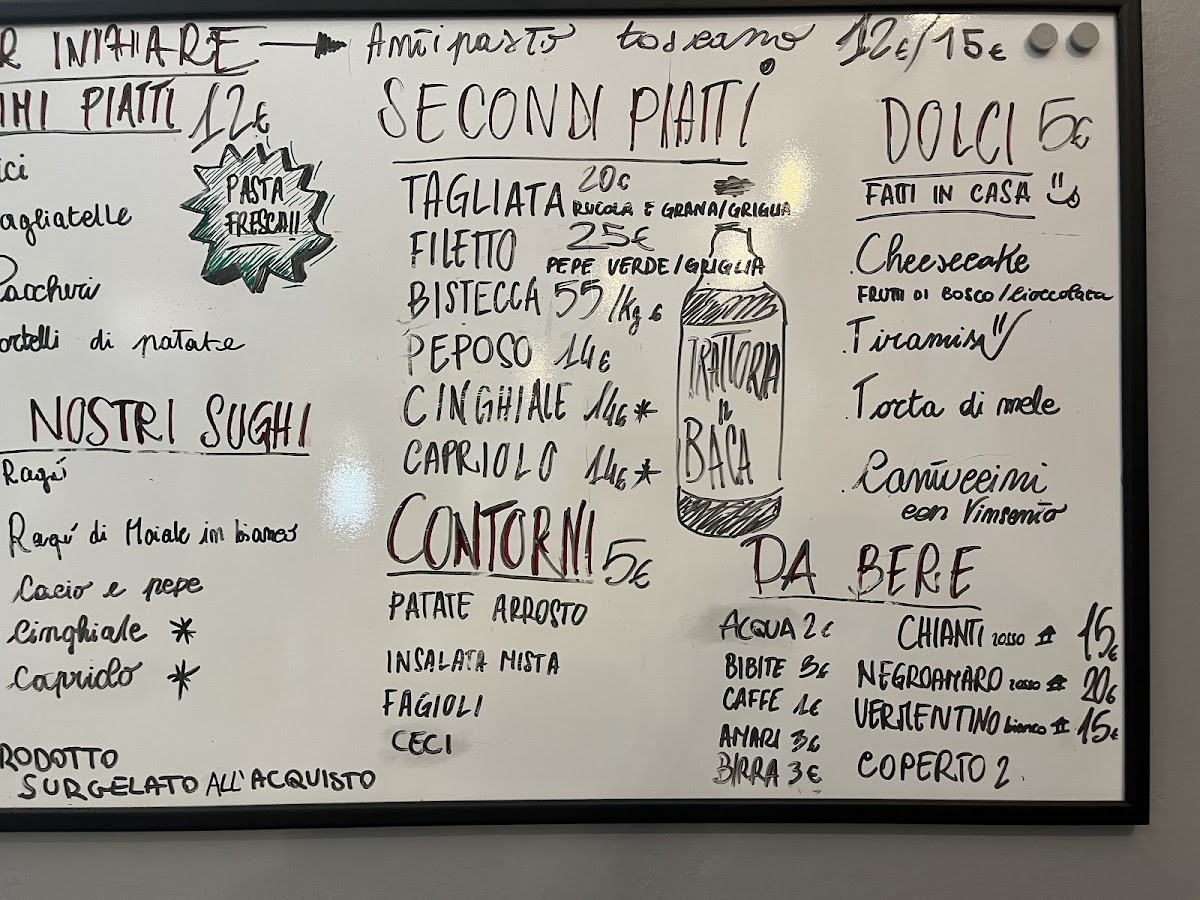 R INIZIARE → Antipasto toscano 12€/15€
IMI PIATTI 12€
ici
agliatelle
Paccheri
ortelli di patate
PASTA
FRESCA!!
NOSTRI SUGHI
Ragú
Ragú di Maiale in bianco
Cacio e pepe
Cinghiale *
Capriolo *
RODOTTO
SURGELATO ALL'ACQUISTO
SECONDI PIATTI
TAGLIATA 20€
RUCOLA E GRANA/GRIGLIA
FILETTO 25€
PEPE VERDE/GRIGLIA
BISTECCA 55/Kg €
PEPOSO 14€
CINGHIALE 14€*
CAPRIOLO 14€*
TRATTORIA
IL
BACA
CONTORNI 5€
PATATE ARROSTO
INSALATA MISTA
FAGIOLI
CECI
DOLCI 5€
FATTI IN CASA
.Cheesecake
FRUTTI DI BOSCO/Cioccolata
.Tiramisù
.Torta di mele
.Cantuccini
con Vinsanto
DA BERE
ACQUA 2€
BIBITE 3€
CAFFE 1€
AMARI 3€
BIRRA 3€
CHIANTI rosso 15€
NEGROAMARO rosso 20€
VERMENTINO bianco 15€
COPERTO 2.